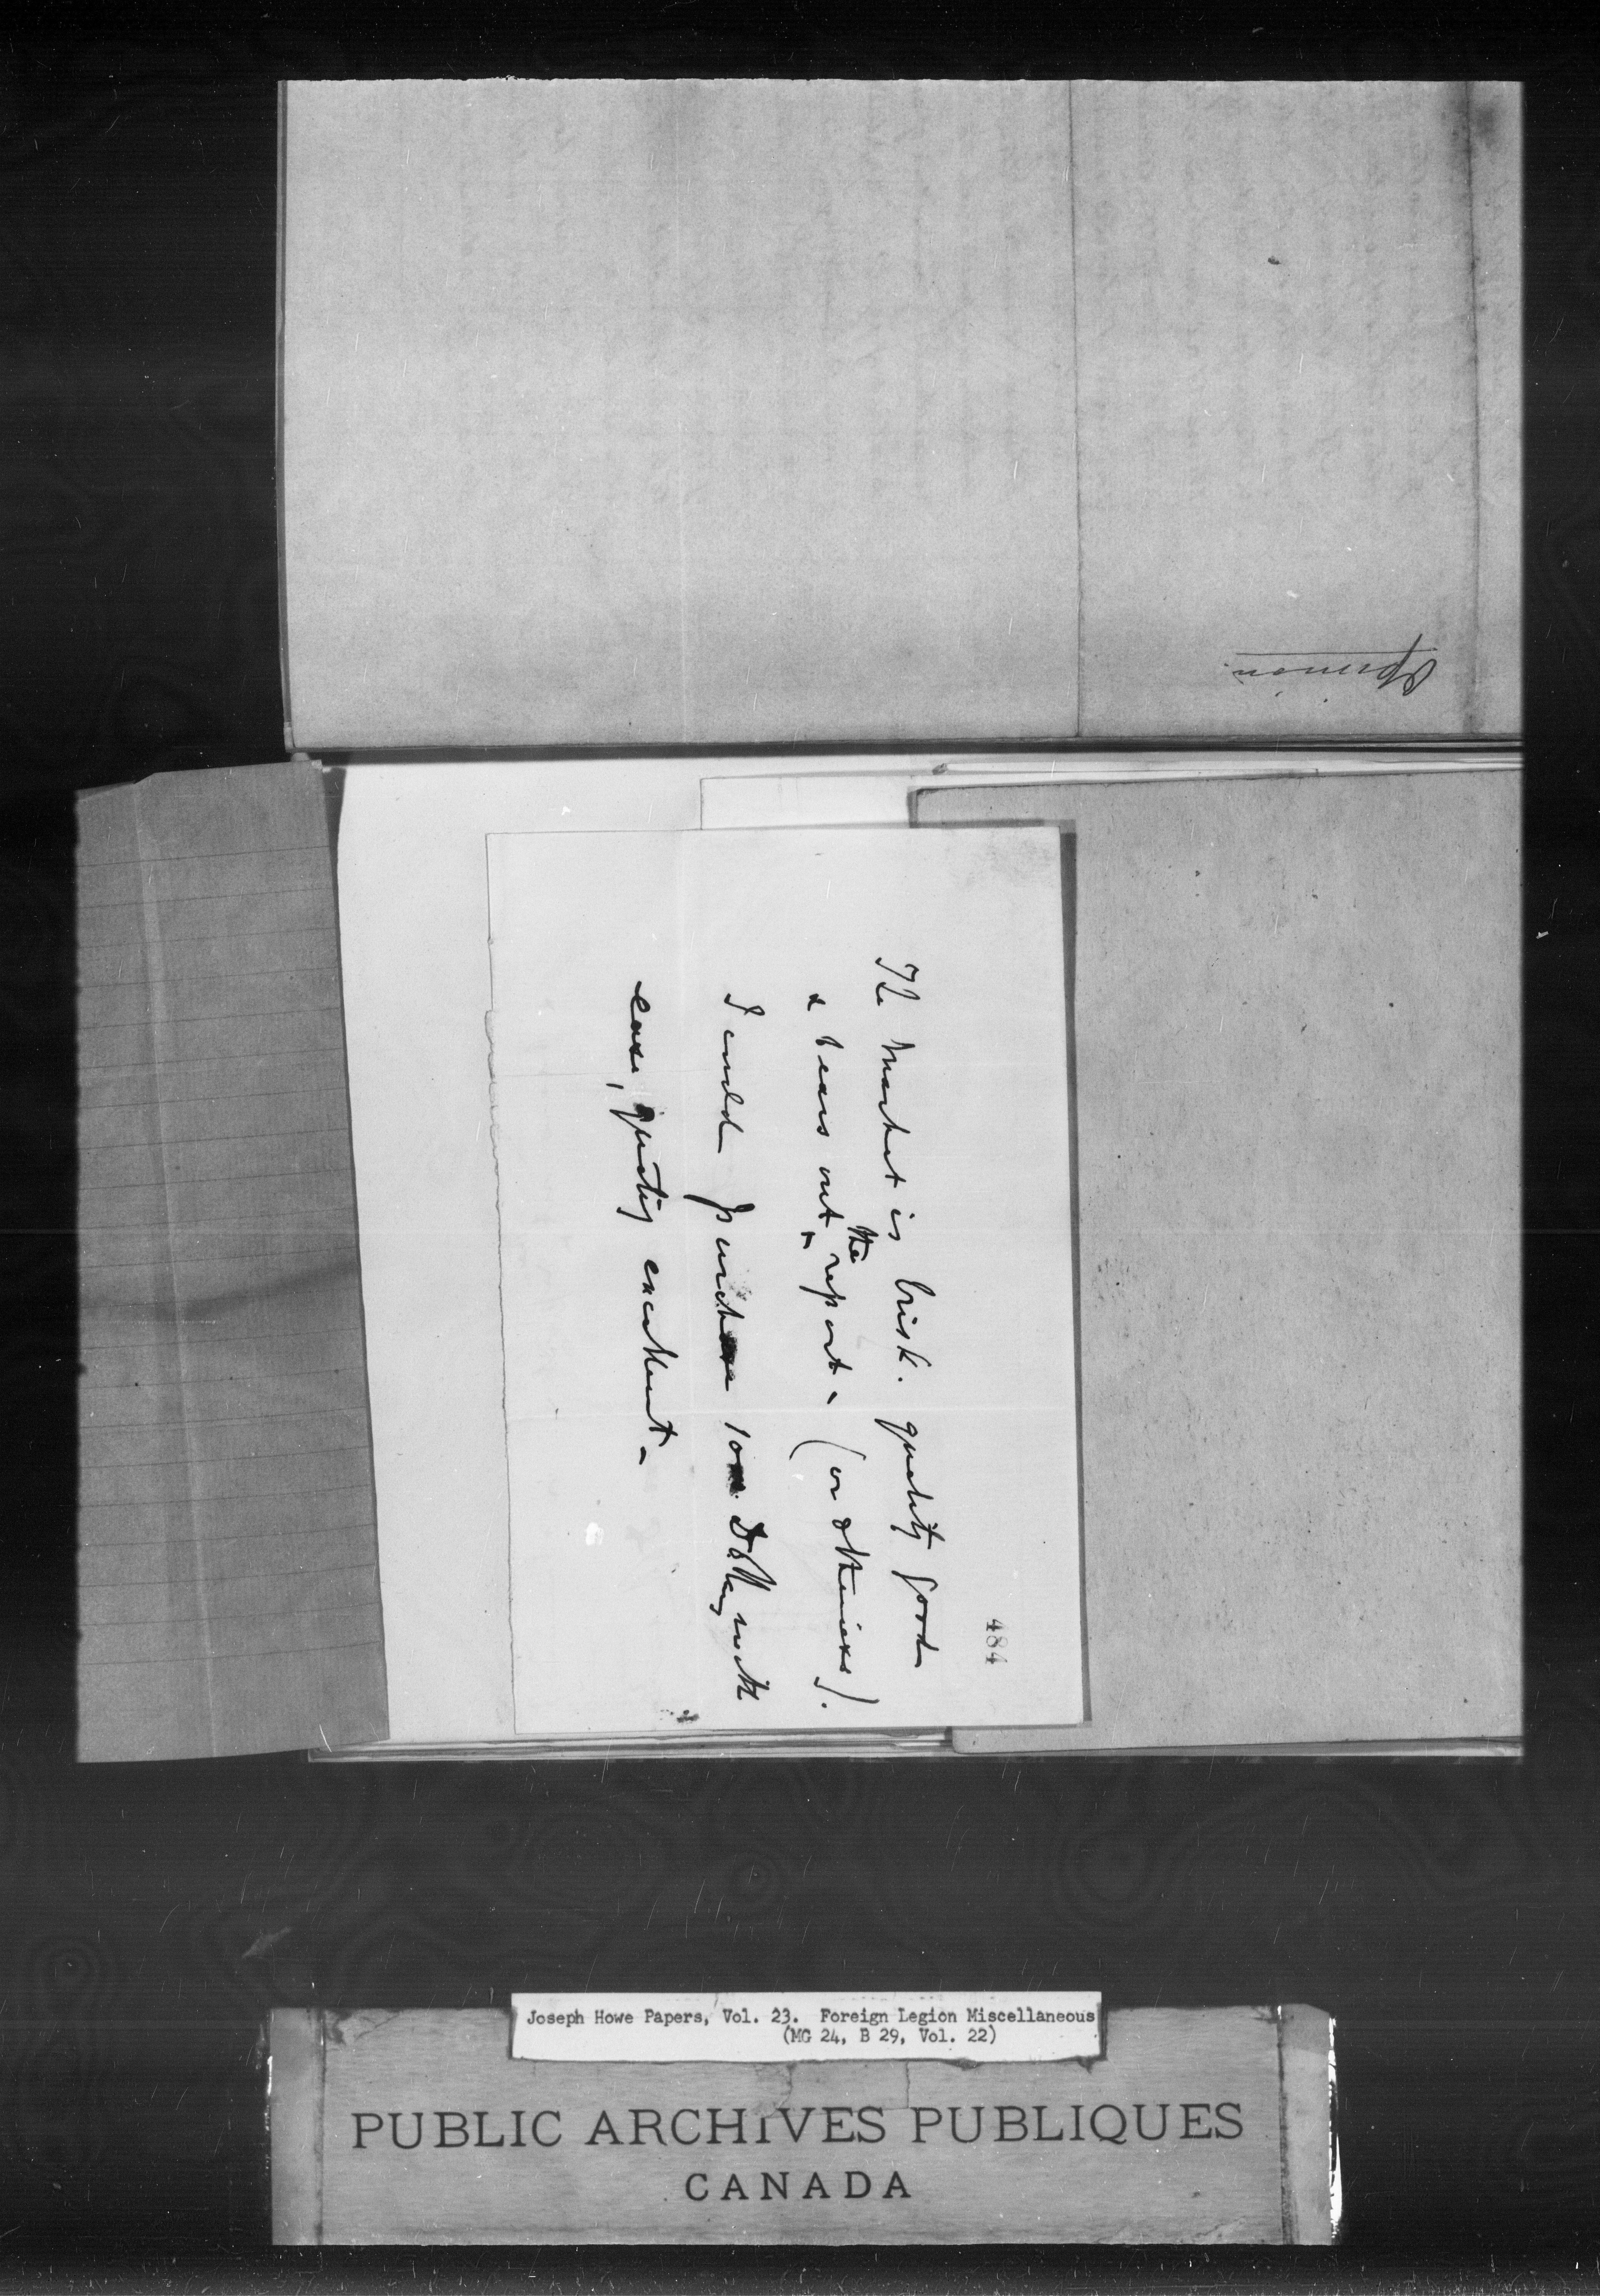 Opinion
484
The Market is brisk. quality good
& bears out the report - (or otherwise).
I could purchase 100 Dollars, with
ease, quality excellent -
Joseph Howe Papers, Vol. 23. Foreign Legion Miscellaneous
(MG 24, B 29, Vol. 22)
PUBLIC ARCHIVES PUBLIQUES
CANADA